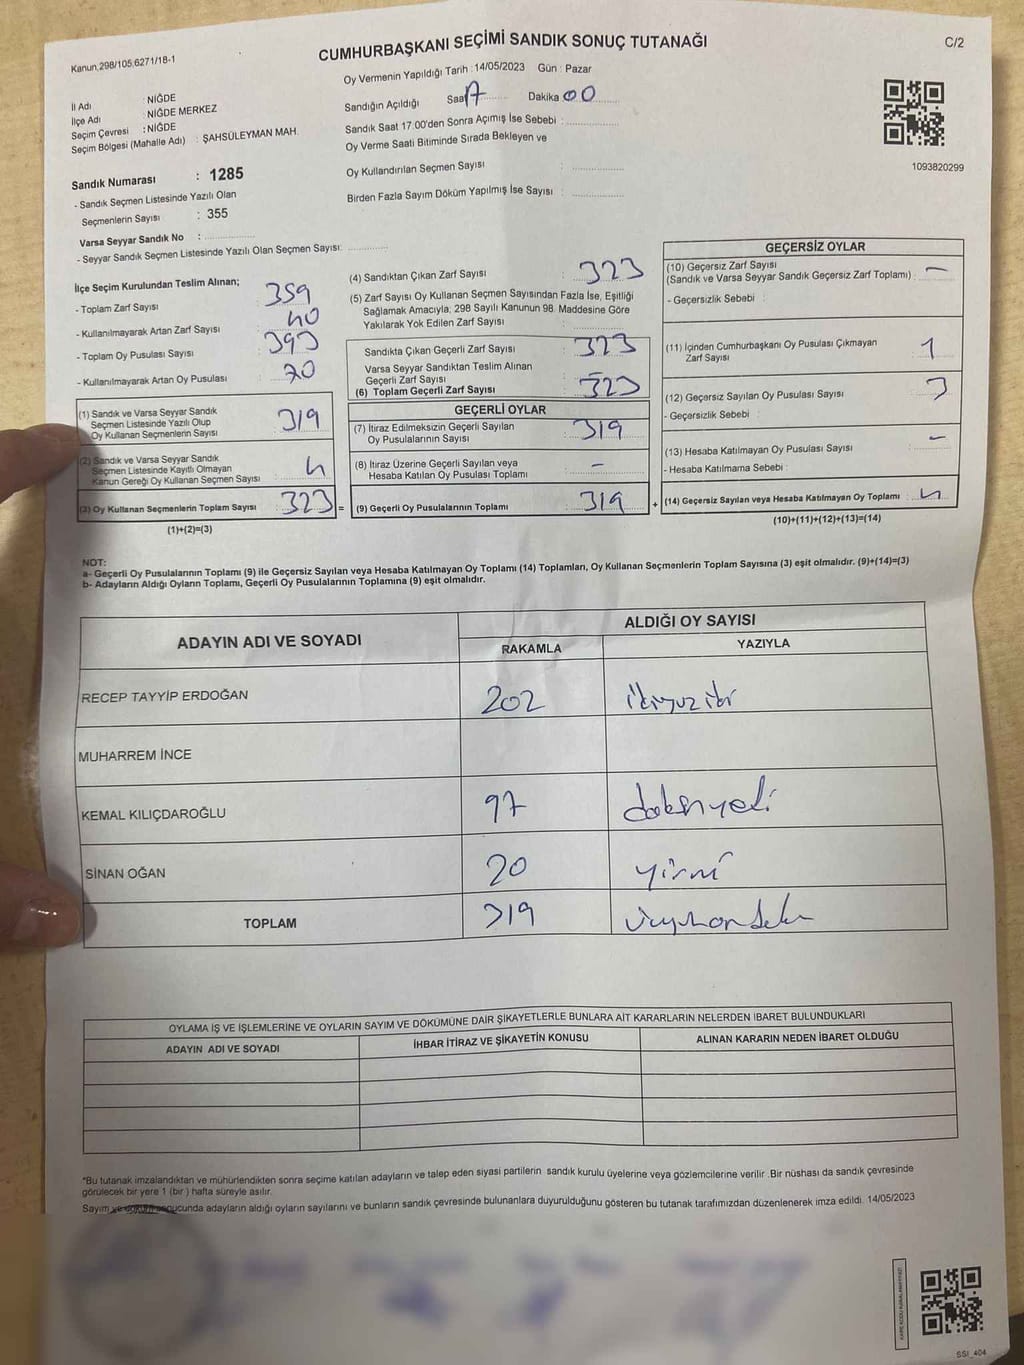 Kanun.298/105,6271/18-1
CUMHURBAŞKANI SEÇİMİ SANDIK SONUÇ TUTANAĞI
C/2
İl Adı : NİĞDE
İlçe Adı : NİĞDE MERKEZ
Seçim Çevresi : NİĞDE
Seçim Bölgesi (Mahalle Adı) : ŞAHSÜLEYMAN MAH.
Sandık Numarası : 1285
- Sandık Seçmen Listesinde Yazılı Olan
Seçmenlerin Sayısı : 355
Varsa Seyyar Sandık No :
- Seyyar Sandık Seçmen Listesinde Yazılı Olan Seçmen Sayısı:
Oy Vermenin Yapıldığı Tarih : 14/05/2023 Gün : Pazar
Sandığın Açıldığı Saat 17 Dakika 00
Sandık Saat 17.00'den Sonra Açımış İse Sebebi :
Oy Verme Saati Bitiminde Sırada Bekleyen ve
Oy Kullandırılan Seçmen Sayısı :
Birden Fazla Sayım Döküm Yapılmış İse Sayısı :
1093820299
İlçe Seçim Kurulundan Teslim Alınan;
- Toplam Zarf Sayısı : 359
- Kullanılmayarak Artan Zarf Sayısı : 40
- Toplam Oy Pusulası Sayısı : 393
- Kullanılmayarak Artan Oy Pusulası : 70
(1) Sandık ve Varsa Seyyar Sandık
Seçmen Listesinde Yazılı Olup
Oy Kullanan Seçmenlerin Sayısı : 319
(2) Sandık ve Varsa Seyyar Sandık
Seçmen Listesinde Kayıtlı Olmayan
Kanun Gereği Oy Kullanan Seçmen Sayısı : 4
(3) Oy Kullanan Seçmenlerin Toplam Sayısı : 323 =
(1)+(2)=(3)
(4) Sandıktan Çıkan Zarf Sayısı : 323
(5) Zarf Sayısı Oy Kullanan Seçmen Sayısından Fazla İse, Eşitliği
Sağlamak Amacıyla, 298 Sayılı Kanunun 98. Maddesine Göre
Yakılarak Yok Edilen Zarf Sayısı :
Sandıkta Çıkan Geçerli Zarf Sayısı : 323
Varsa Seyyar Sandıktan Teslim Alınan
Geçerli Zarf Sayısı : –
(6) Toplam Geçerli Zarf Sayısı : 323
GEÇERLİ OYLAR
(7) İtiraz Edilmeksizin Geçerli Sayılan
Oy Pusulalarının Sayısı : 319
(8) İtiraz Üzerine Geçerli Sayılan veya
Hesaba Katılan Oy Pusulası Toplamı : –
(9) Geçerli Oy Pusulalarının Toplamı : 319 +
GEÇERSİZ OYLAR
(10) Geçersiz Zarf Sayısı
(Sandık ve Varsa Seyyar Sandık Geçersiz Zarf Toplamı) : –
- Geçersizlik Sebebi :
(11) İçinden Cumhurbaşkanı Oy Pusulası Çıkmayan
Zarf Sayısı : 1
(12) Geçersiz Sayılan Oy Pusulası Sayısı : 3
- Geçersizlik Sebebi :
(13) Hesaba Katılmayan Oy Pusulası Sayısı : –
- Hesaba Katılmama Sebebi :
(14) Geçersiz Sayılan veya Hesaba Katılmayan Oy Toplamı : 4
(10)+(11)+(12)+(13)=(14)
NOT:
a- Geçerli Oy Pusulalarının Toplamı (9) ile Geçersiz Sayılan veya Hesaba Katılmayan Oy Toplamı (14) Toplamları, Oy Kullanan Seçmenlerin Toplam Sayısına (3) eşit olmalıdır. (9)+(14)=(3)
b- Adayların Aldığı Oyların Toplamı, Geçerli Oy Pusulalarının Toplamına (9) eşit olmalıdır.
ADAYIN ADI VE SOYADI
ALDIĞI OY SAYISI
RAKAMLA YAZIYLA
RECEP TAYYİP ERDOĞAN 202 ikiyüziki
MUHARREM İNCE
KEMAL KILIÇDAROĞLU 97 doksanyedi
SİNAN OĞAN 20 yirmi
TOPLAM 319
OYLAMA İŞ VE İŞLEMLERİNE VE OYLARIN SAYIM VE DÖKÜMÜNE DAİR ŞİKAYETLERLE BUNLARA AİT KARARLARIN NELERDEN İBARET BULUNDUKLARI
ADAYIN ADI VE SOYADI İHBAR İTİRAZ VE ŞİKAYETİN KONUSU ALINAN KARARIN NEDEN İBARET OLDUĞU
*Bu tutanak imzalandıktan ve mühürlendikten sonra seçime katılan adayların ve talep eden siyasi partilerin sandık kurulu üyelerine veya gözlemcilerine verilir .Bir nüshası da sandık çevresinde
görülecek bir yere 1 (bir ) hafta süreyle asılır.
Sayım ve döküm sonucunda adayların aldığı oyların sayılarını ve bunların sandık çevresinde bulunanlara duyurulduğunu gösteren bu tutanak tarafımızdan düzenlenerek imza edildi. 14/05/2023
SSI_404